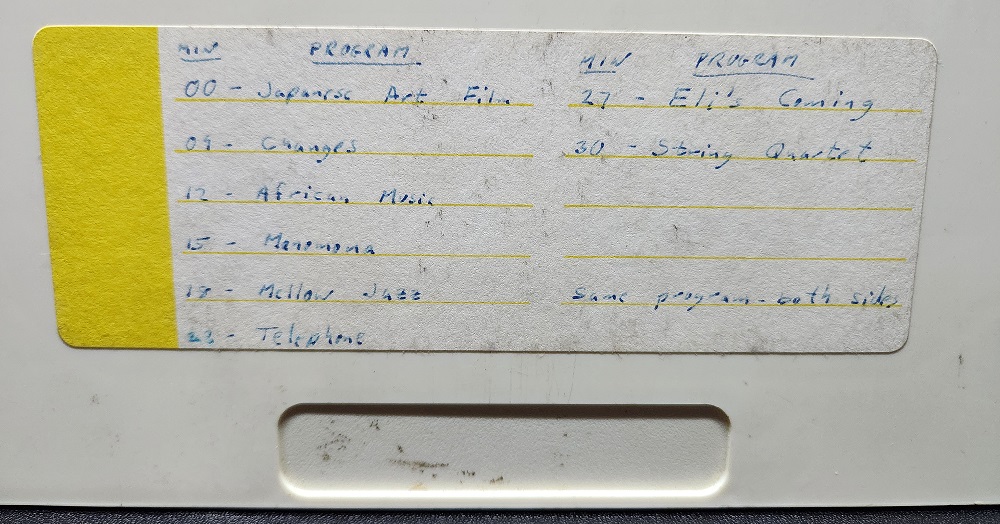 MIN PROGRAM
00 - Japanese Art Film
09 - Changes
12 - African Music
15 - Menomona
18 - Mellow Jazz
23 - Telephone
MIN PROGRAM
27 - Eli's Coming
30 - String Quartet
same program - both sides